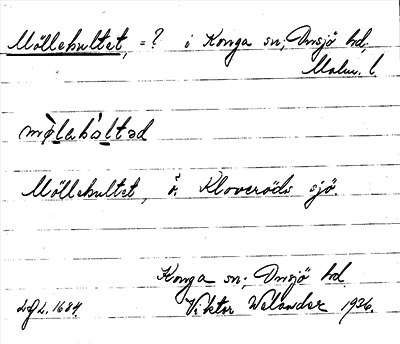 Möllehultet, =? i Konga sn, Onsjö hd,
Malm. l
mø̀lahàltəd
Möllehultet, ö. Kloveröds sjö.
Konga sn, Onsjö hd.
LgL. 1684 Viktor Welander 1936.